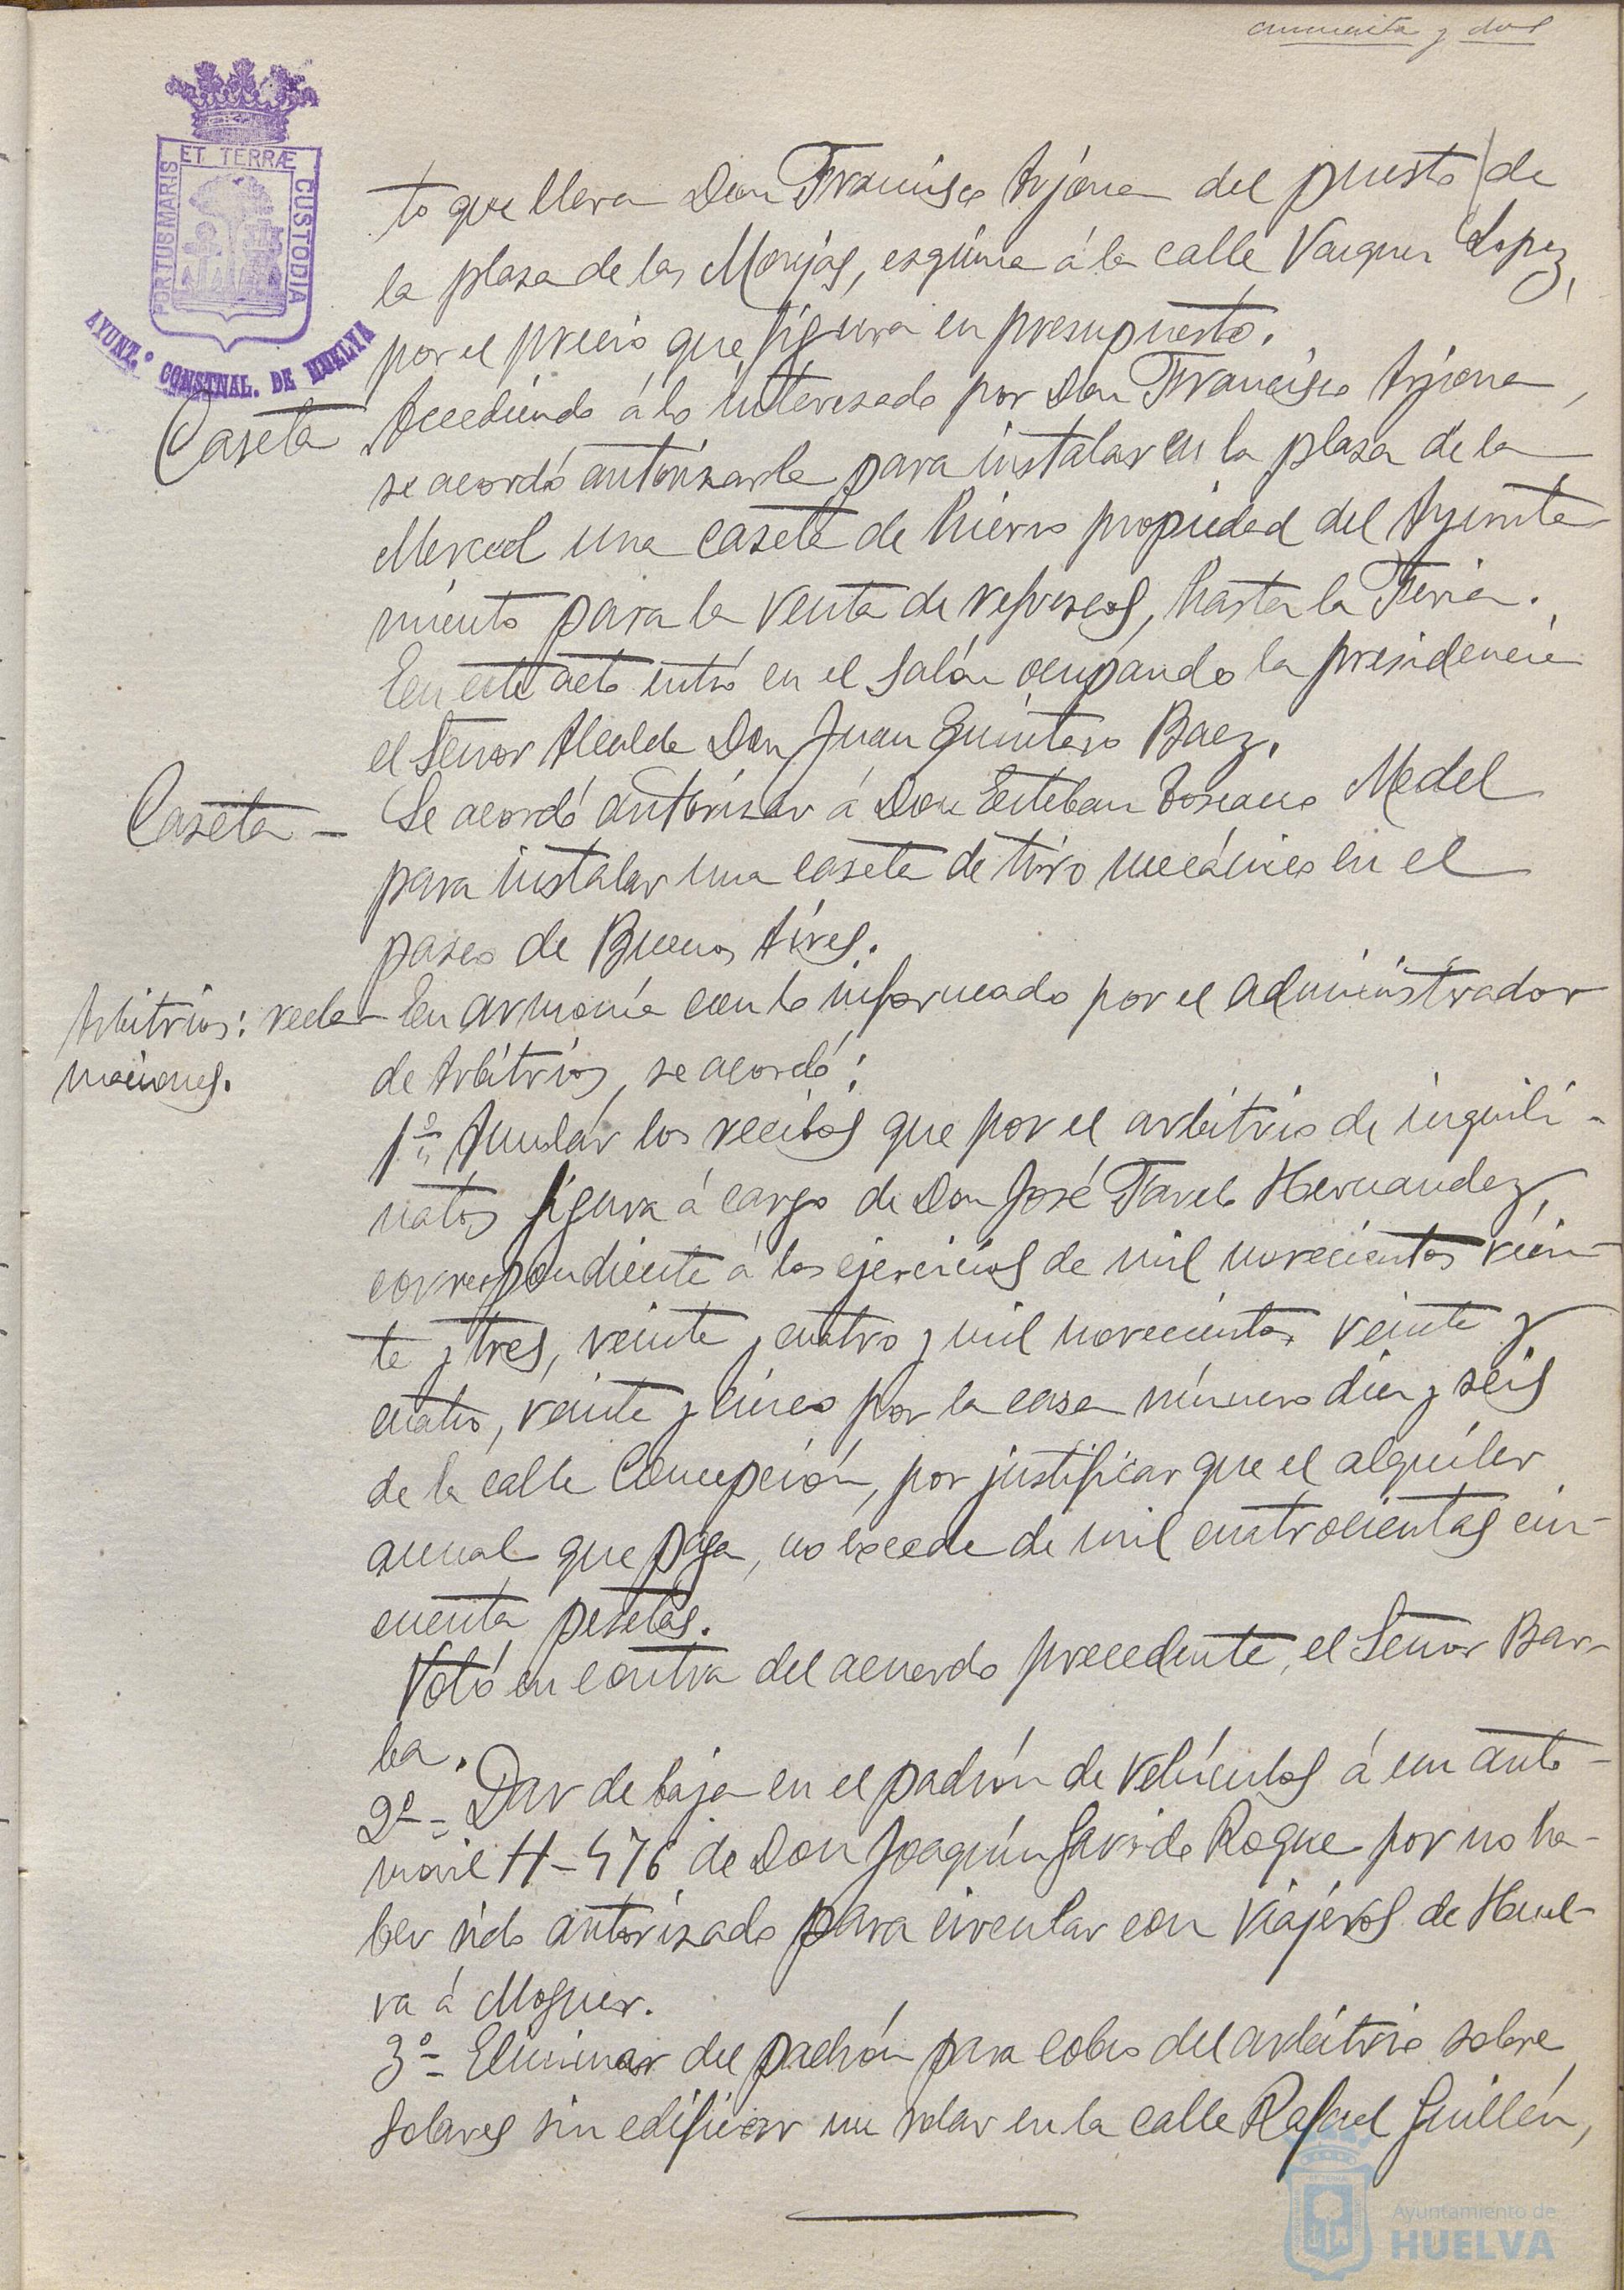 cincuenta y dos
ET TERRÆ
PORTUS MARIS
CUSTODIA
AYUNT.º CONSTNAL. DE HUELVA
to que lleva Don Francisco Arjona del puesto de
la plaza de las Monjas, esquina á la calle Vazquez Lopez,
por el precio que figura en presupuesto.
Caseta Accediendo á lo interesado por Don Francisco Arjona,
se acordó autorizarle para instalar en la plaza de la
Merced una caseta de hierro propiedad del Ayunta-
miento para la venta de refrescos, hasta la Feria.
En este acto entró en el salón ocupando la presidencia
el Señor Alcalde Don Juan Quintero Baez.
Caseta - Se acordó autorizar á Don Esteban Toscano Medel
para instalar una caseta de tiro mecánico en el
paseo de Buenos Aires.
Arbitrios: recla- En armonía con lo informado por el administrador
maciones. de Arbitrios, se acordó:
1º= Anular los recibos que por el arbitrio de inquili-
natos figura á cargo de Don José Hernandez,
correspondiente á los ejercicios de mil novecientos vein-
te y tres, veinte y cuatro y mil novecientos veinte y
cuatro, veinte y cinco por la casa número diez y seis
de la calle Concepción, por justificar que el alquiler
anual que paga, no excede de mil cuatrocientas cin-
cuenta pesetas.
Votó en contra del acuerdo precedente, el Señor Bar-
ba.
2º= Dar de baja en el padrón de vehículos á un auto-
movil H-476 de Don Joaquín Garrido Roque por no ha-
ber sido autorizado para circular con viajeros de Huel-
va á Moguer.
3º= Eliminar del padrón para cobro del arbitrio sobre
solares sin edificar un solar en la calle Rafael Guillén,
Ayuntamiento de
HUELVA